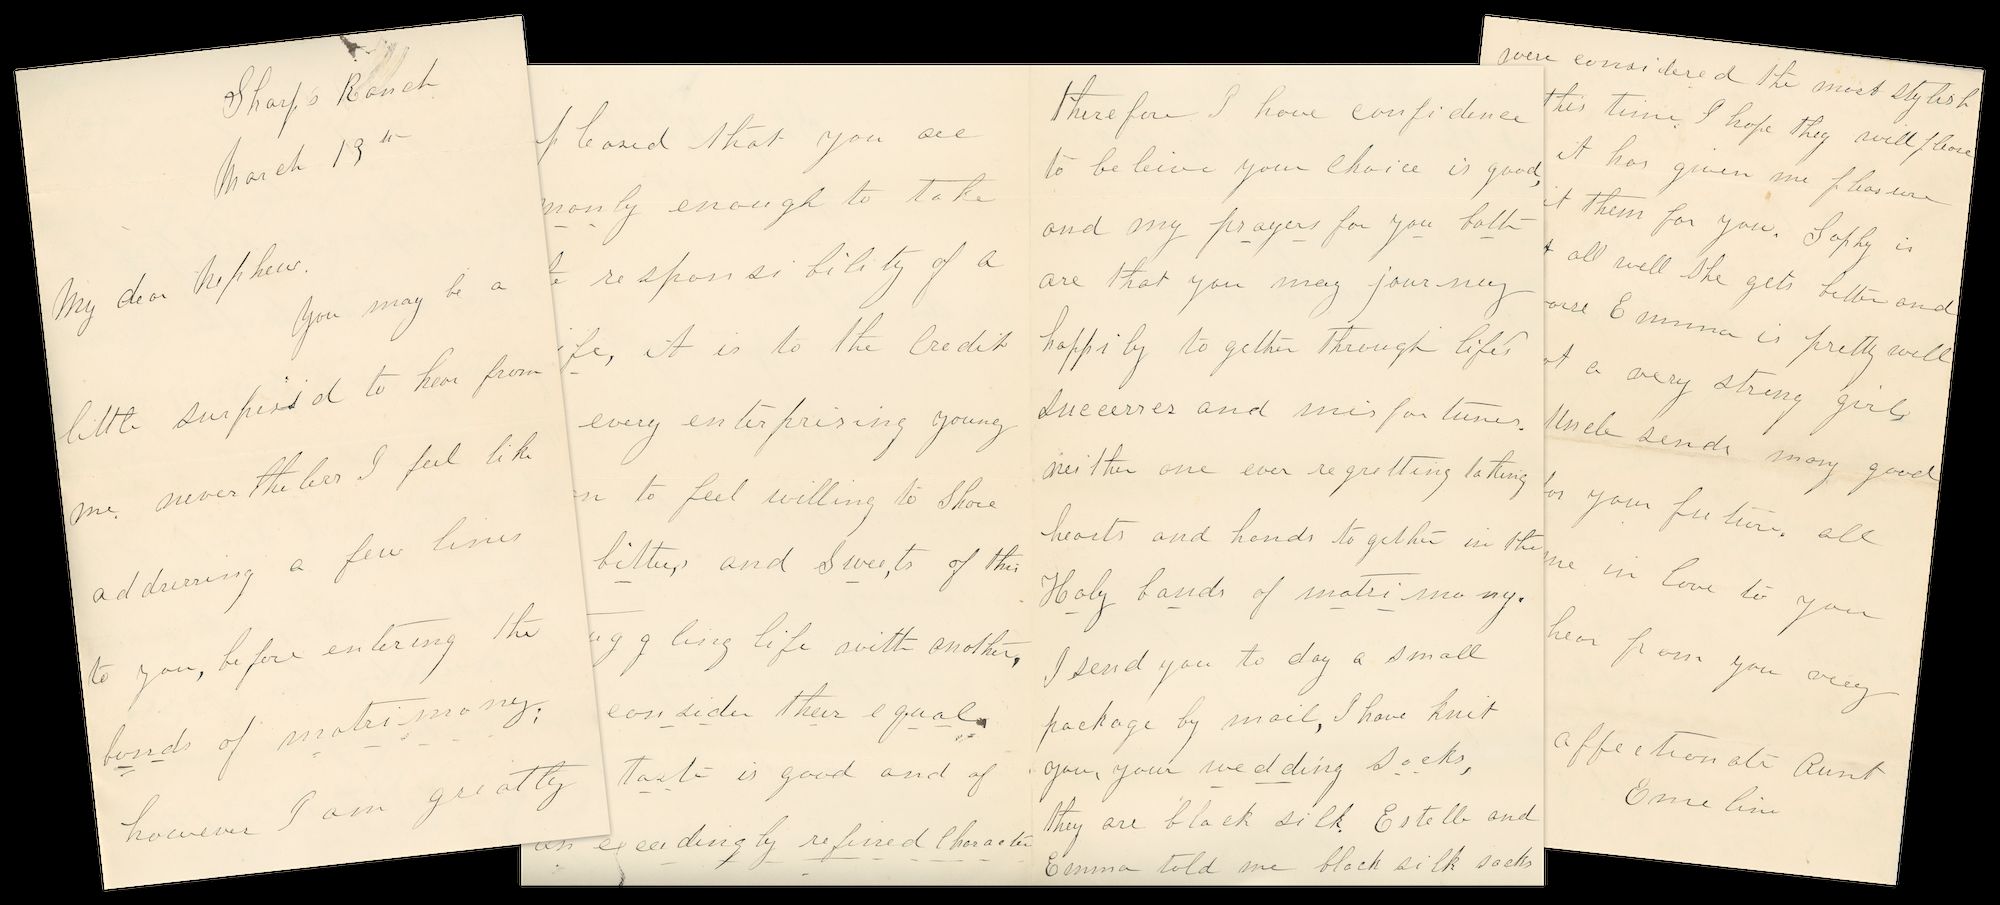 Sharp's Ranch
March 13th
My dear Nephew.
You may be a
little surpris'd to hear from
me. never theless I feel like
addressing a few lines
to you, before entering the
bonds of matrimony;
however I am greatly
pleased that you are
manly enough to take
responsibility of a
ife, it is to the Credit
every enterprising young
n to feel willing to Share
bitters and Sweets of this
uggling life with another,
consider their equal.
taste is good and of
an exceedingly refined Character
therefore I have confidence
to beleive your choice is good,
and my prayers for you both
are that you may journey
happily together through life's
successes and misfortunes.
neither one ever regretting tatting
hearts and hands together in the
Holy bands of matrimony.
I send you to day a small
package by mail, I have knit
you, your wedding socks,
they are black silk. Estelle and
Emma told me black silk socks
were considered the most stylish
this time. I hope they will please
it has given me pleasure
it them for you. Sophy is
t all well She gets better and
orse Emma is pretty well
ot a very strong girl,
Uncle sends many good
for your future. all
me in love to you
hear from you very
affectionate Aunt
Emeline